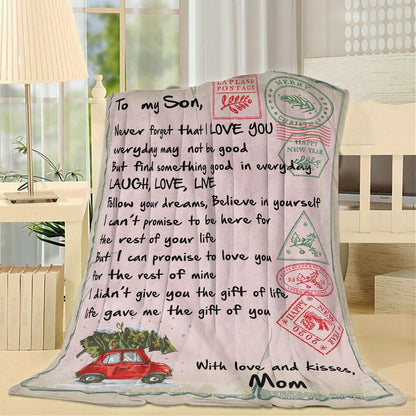 LAPLAND
POSTAGE
MERRY
CHRISTMAS
HAPPY
NEW YEAR
To my Son,
Never forget that I LOVE YOU
everyday may not be good
But find something good in everyday
LAUGH, LOVE, LIVE
Follow your dreams, Believe in yourself
I can't promise to be here for
the rest of your life
But I can promise to love you
for the rest of mine
I didn't give you the gift of life
life gave me the gift of you
HAPPY
NEW YEAR
2020
With love and kisses,
Mom